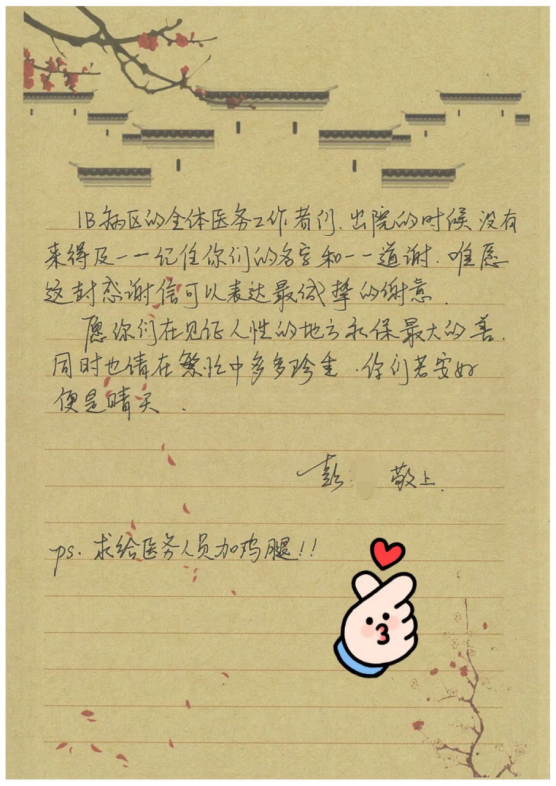 1B病区的全体医务工作者们，出院的时候没有
来得及一一记住你们的名字和一一道谢．唯愿
这封感谢信可以表达最诚挚的谢意．
愿你们在见证人性的地方永保最大的善．
同时也请在繁忙中多多珍重．你们若安好
便是晴天．
彭 敬上．
ps. 求给医务人员加鸡腿!!